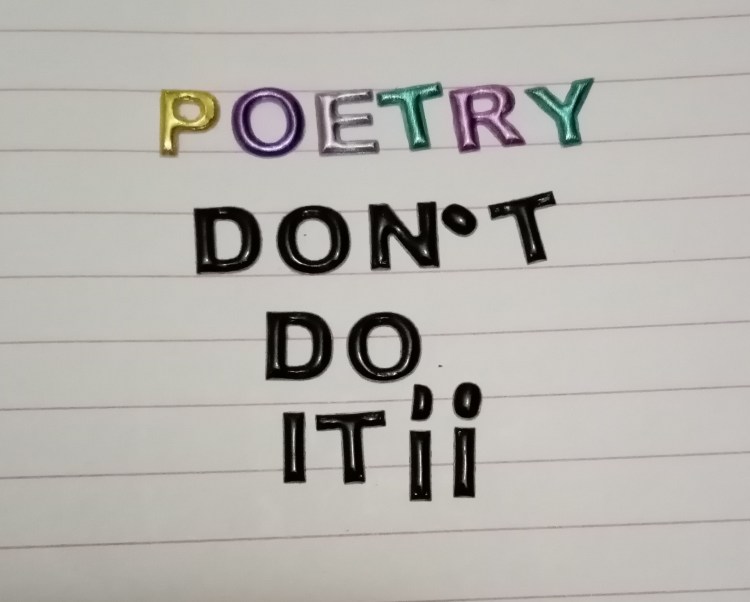 POETRY
DON'T
DO
IT¡¡